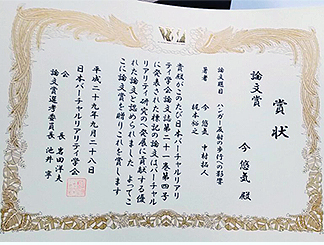 賞状
論文賞
今 悠気 殿
論文題目 ハンガー反射の歩行への影響
著者 今 悠気 中村拓人
梶本裕之
貴殿がこのたび日本バーチャルリアリ
ティ学会論文誌第二十一巻第四号
に発表された標記の論文は バーチャル
リアリティ研究の発展に貢献する優
れた論文と認められました よってこ
こに論文賞を贈りこれを賞します
平成二十九年九月二十八日
日本バーチャルリアリティ学会
会長 岩田洋夫
論文賞選考委員長 池井 寧